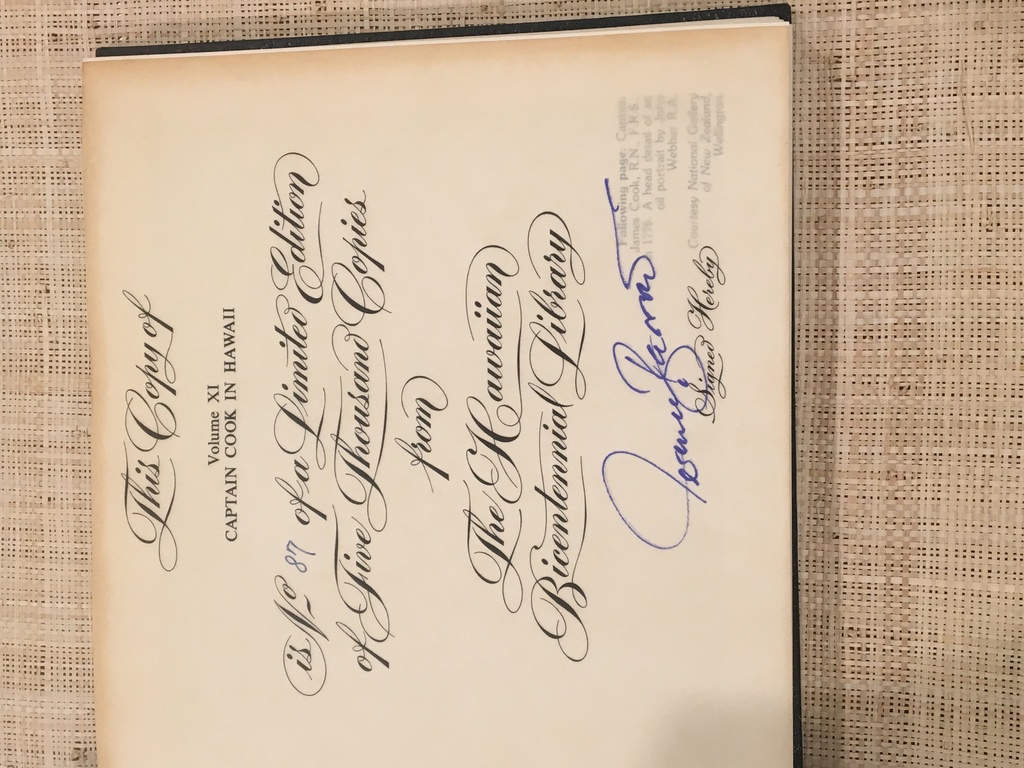 This Copy of
Volume XI
CAPTAIN COOK IN HAWAII
is No 87 of a Limited Edition
of Five Thousand Copies
from
The Hawaiian
Bicentennial Library
Following page. Captain
James Cook, R.N., F.R.S.
1776. A head detail of an
oil portrait by John
Webber R.A.
Courtesy National Gallery
of New Zealand,
Wellington
Signed Hereby